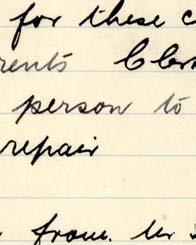 for these c
rents Cler
person to
repair
from. Mr s